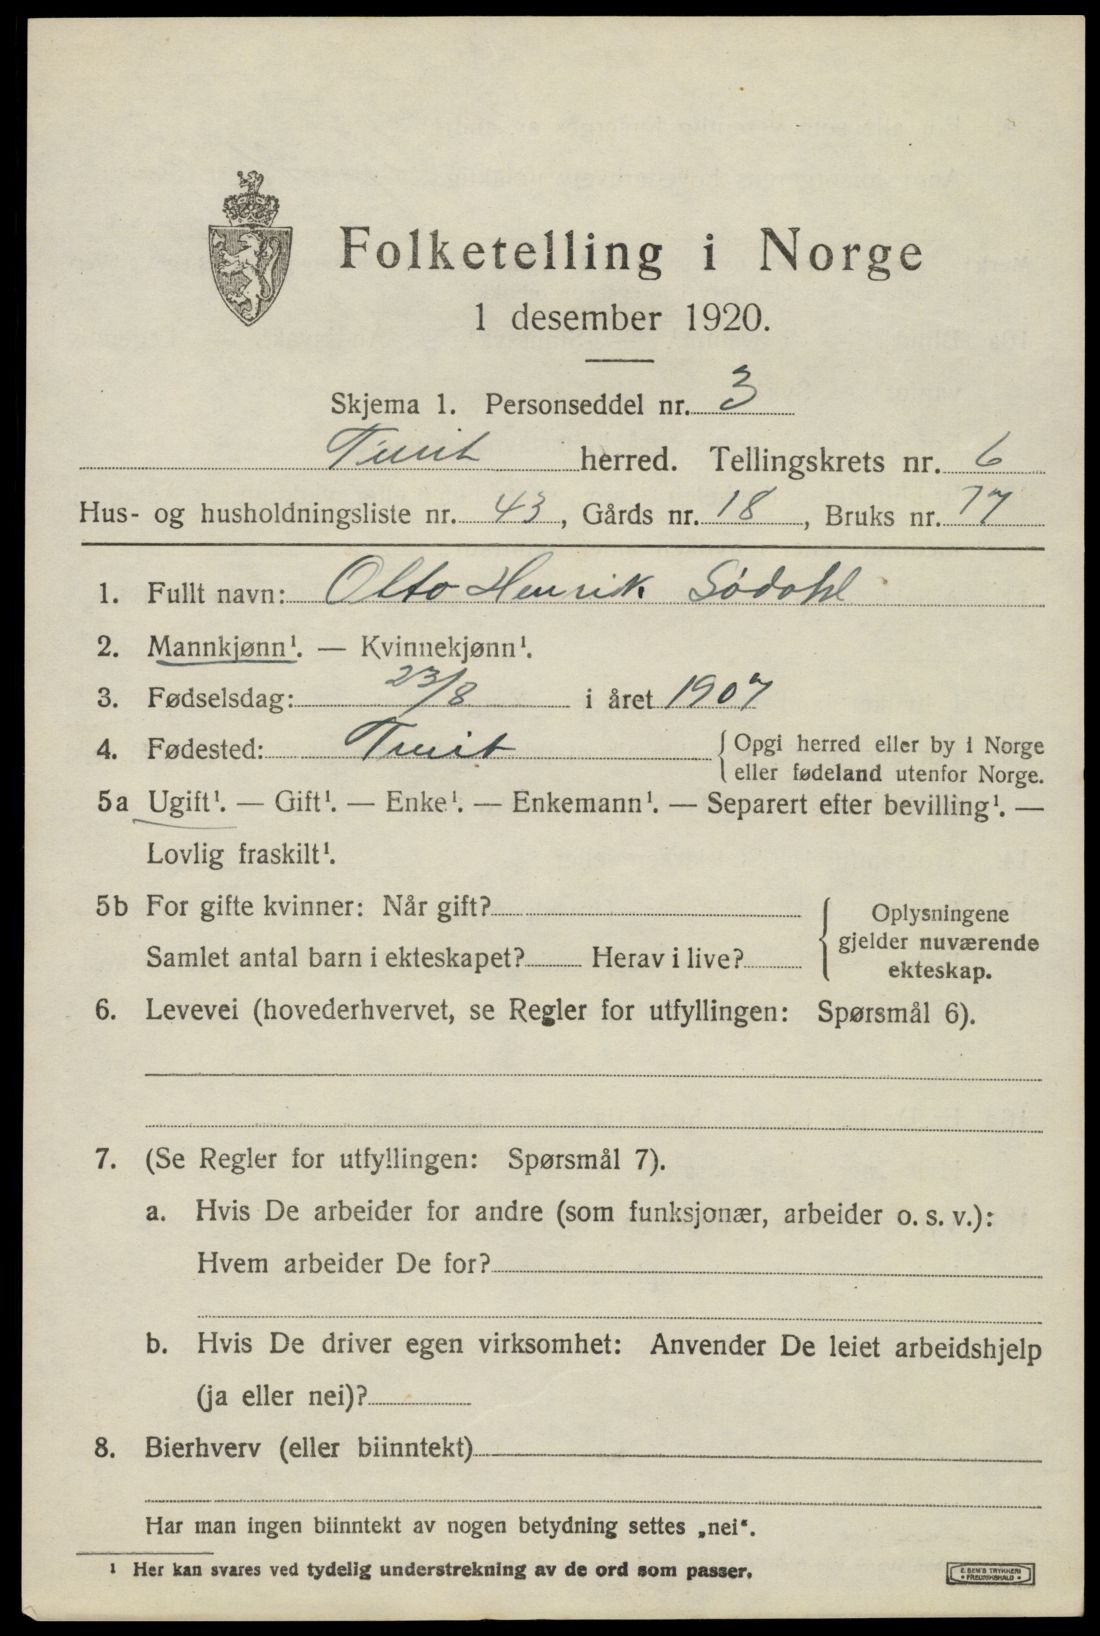 Folketelling i Norge
1 desember 1920.
Skjema 1. Personseddel nr. 3
herred. Tellingskrets nr. 6
Hus- og husholdningsliste nr. 43, Gårds nr. 18, Bruks nr. 77
1. Fullt navn: Otto Henrik Sødahl
2. Mannkjønn¹. — Kvinnekjønn¹.
3. Fødselsdag: 23/8 i året 1907
4. Fødested: Opgi herred eller by i Norge
eller fødeland utenfor Norge.
5a Ugift¹. — Gift¹. — Enke¹. — Enkemann¹. — Separert efter bevilling¹. —
Lovlig fraskilt¹.
5b For gifte kvinner: Når gift?
Samlet antal barn i ekteskapet? Herav i live?
Oplysningene
gjelder nuværende
ekteskap.
6. Levevei (hovederhvervet, se Regler for utfyllingen: Spørsmål 6).
7. (Se Regler for utfyllingen: Spørsmål 7).
a. Hvis De arbeider for andre (som funksjonær, arbeider o. s. v.):
Hvem arbeider De for?
b. Hvis De driver egen virksomhet: Anvender De leiet arbeidshjelp
(ja eller nei)?
8. Bierhverv (eller biinntekt)
Har man ingen biinntekt av nogen betydning settes „nei“.
¹ Her kan svares ved tydelig understrekning av de ord som passer.
E. SEM'S TRYKKERI
• FREDRIKSHALD •